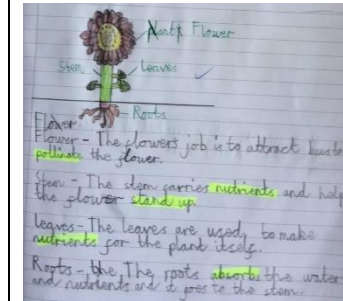 Flower
Stem
Leaves
Roots
Flower
Flower - The flowers job is to attract to
pollinate the flower.
Stem - The stem carries nutrients and help
the flower stand up
leaves - The leaves are used, to make
nutrients for the plant itself.
Roots - the The roots absorb the water
and nutrients and it goes to the stem.